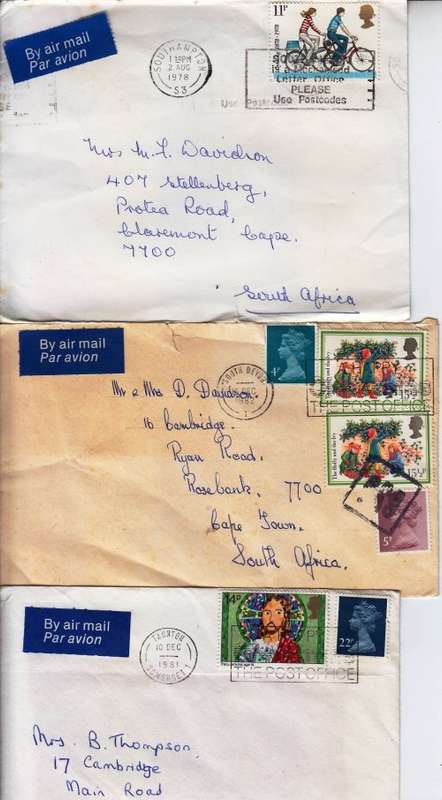 By air mail
Par avion
SOUTHAMPTON
PM
2 AUG
1978
S3
11P
Letter Office
PLEASE
Use Postcodes
Use Post
Mrs M. F. Davidson
407 Stellenberg,
Protea Road,
Claremont Cape.
7700
South Africa
By air mail
Par avion
4P
SOUTH DEVON
DEC
The Holly and the Ivy
15½P
THE POST OFFICE
The Holly and the Ivy
15½P
5P
Mr & Mrs D. Davidson.
16 Cambridge.
Ryan Road.
Rosebank. 7700
Cape Town.
South Africa.
By air mail
Par avion
TAUNTON
10 DEC
1981
SOMERSET
14P
22P
THE POST OFFICE
Mrs. B. Thompson.
17 Cambridge
Main Road